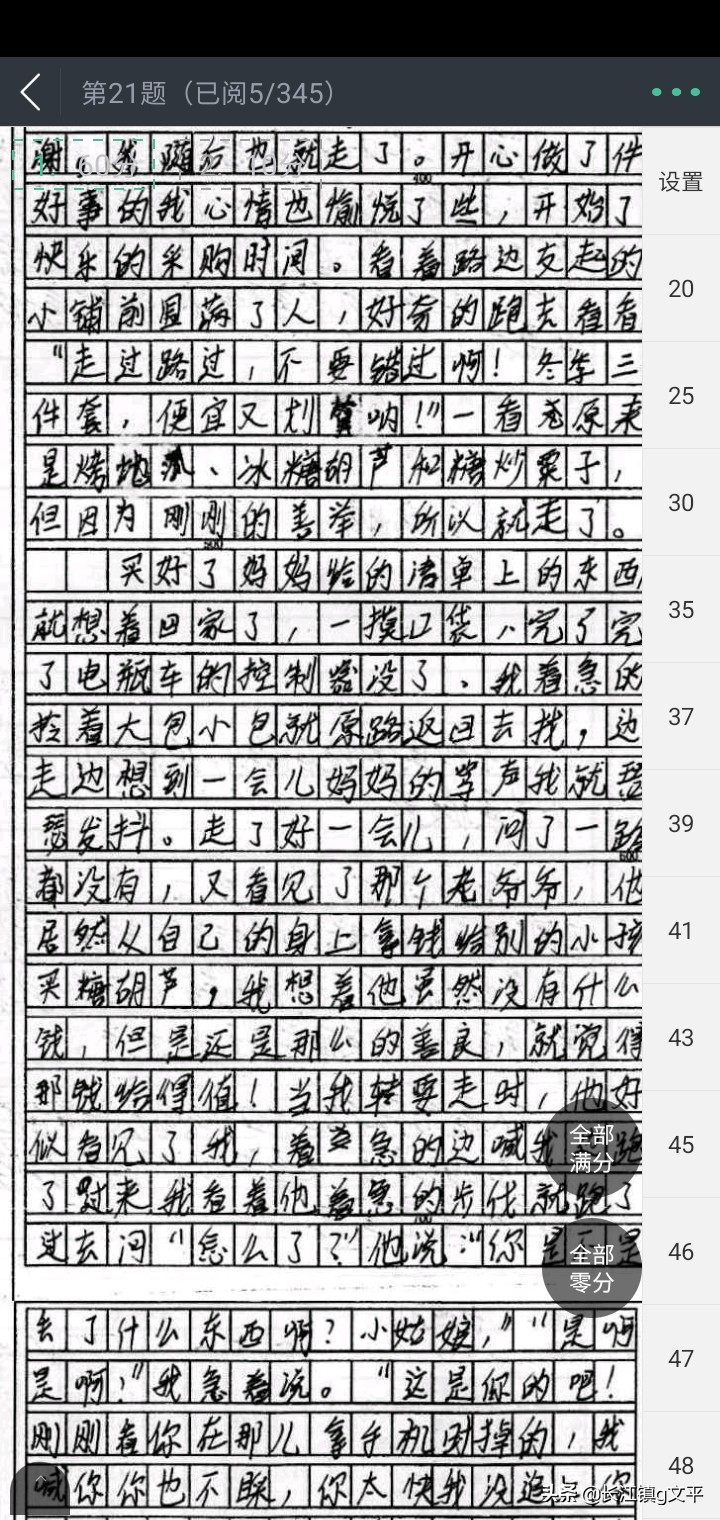 第21题（已阅5/345）
设置
20
25
30
35
37
39
41
43
45
46
47
48
全部
满分
全部
零分
谢。我随后也就走了。开心做了件
400
好事的我心情也愉悦了些，开始了
快乐的采购时间。看着路边支起的
小铺前围满了人，好奇的跑去看看
“走过路过，不要错过啊！冬季三
件套，便宜又划算呐！”一看原来
是烤地瓜、冰糖胡芦和糖炒栗子，
但因为刚刚的善举，所以就走了。
500
买好了妈妈给的清单上的东西
就想着回家了，一摸口袋，完了完
了电瓶车的控制器没了。我着急的
拎着大包小包就原路返回去找，边
走边想到一会儿妈妈的骂声我就瑟
瑟发抖。走了好一会儿，问了一路
600
都没有，又看见了那个老爷爷，他
居然从自己的身上拿钱给别的小孩
买糖胡芦，我想着他虽然没有什么
钱，但是还是那么的善良，就觉得
那钱给得值！当我转要走时，他好
似看见了我，着急的边喊我跑
了过来我看着他着急的步伐就跑了
700
过去问“怎么了？”他说：“你是是
去了什么东西啊？小姑娘，”“是啊
是啊！”我急着说。“这是你的吧！
刚刚看你在那儿拿手机时掉的，我
喊你你也不睬，你太快我没追
头条 @长江镇g文平